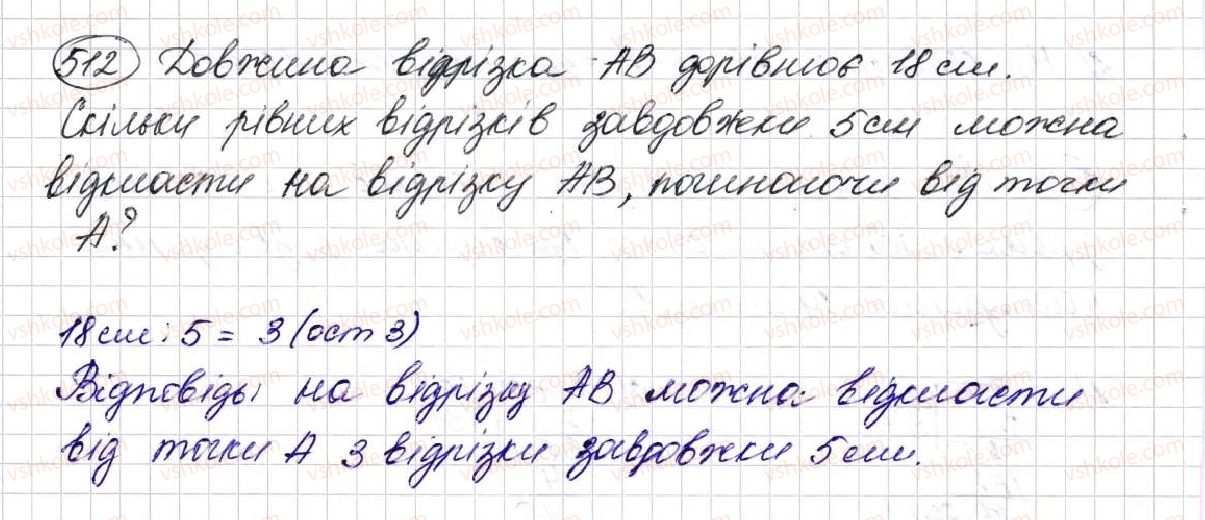 512 Довжина відрізка AB дорівнює 18 см.
Скільки рівних відрізків завдовжки 5 см можна
відкласти на відрізку AB, починаючи від точки
A?
18 см : 5 = 3 (ост 3)
Відповідь: на відрізку AB можна відкласти
від точки A 3 відрізки завдовжки 5 см.